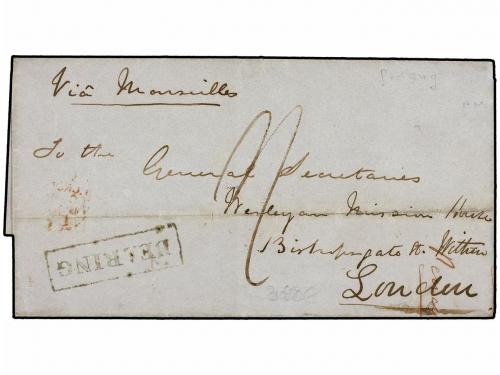 Viâ Marseilles
To the
General Secretaries
Wesleyan Mission House
Bishopsgate St. Within
London
BEARING